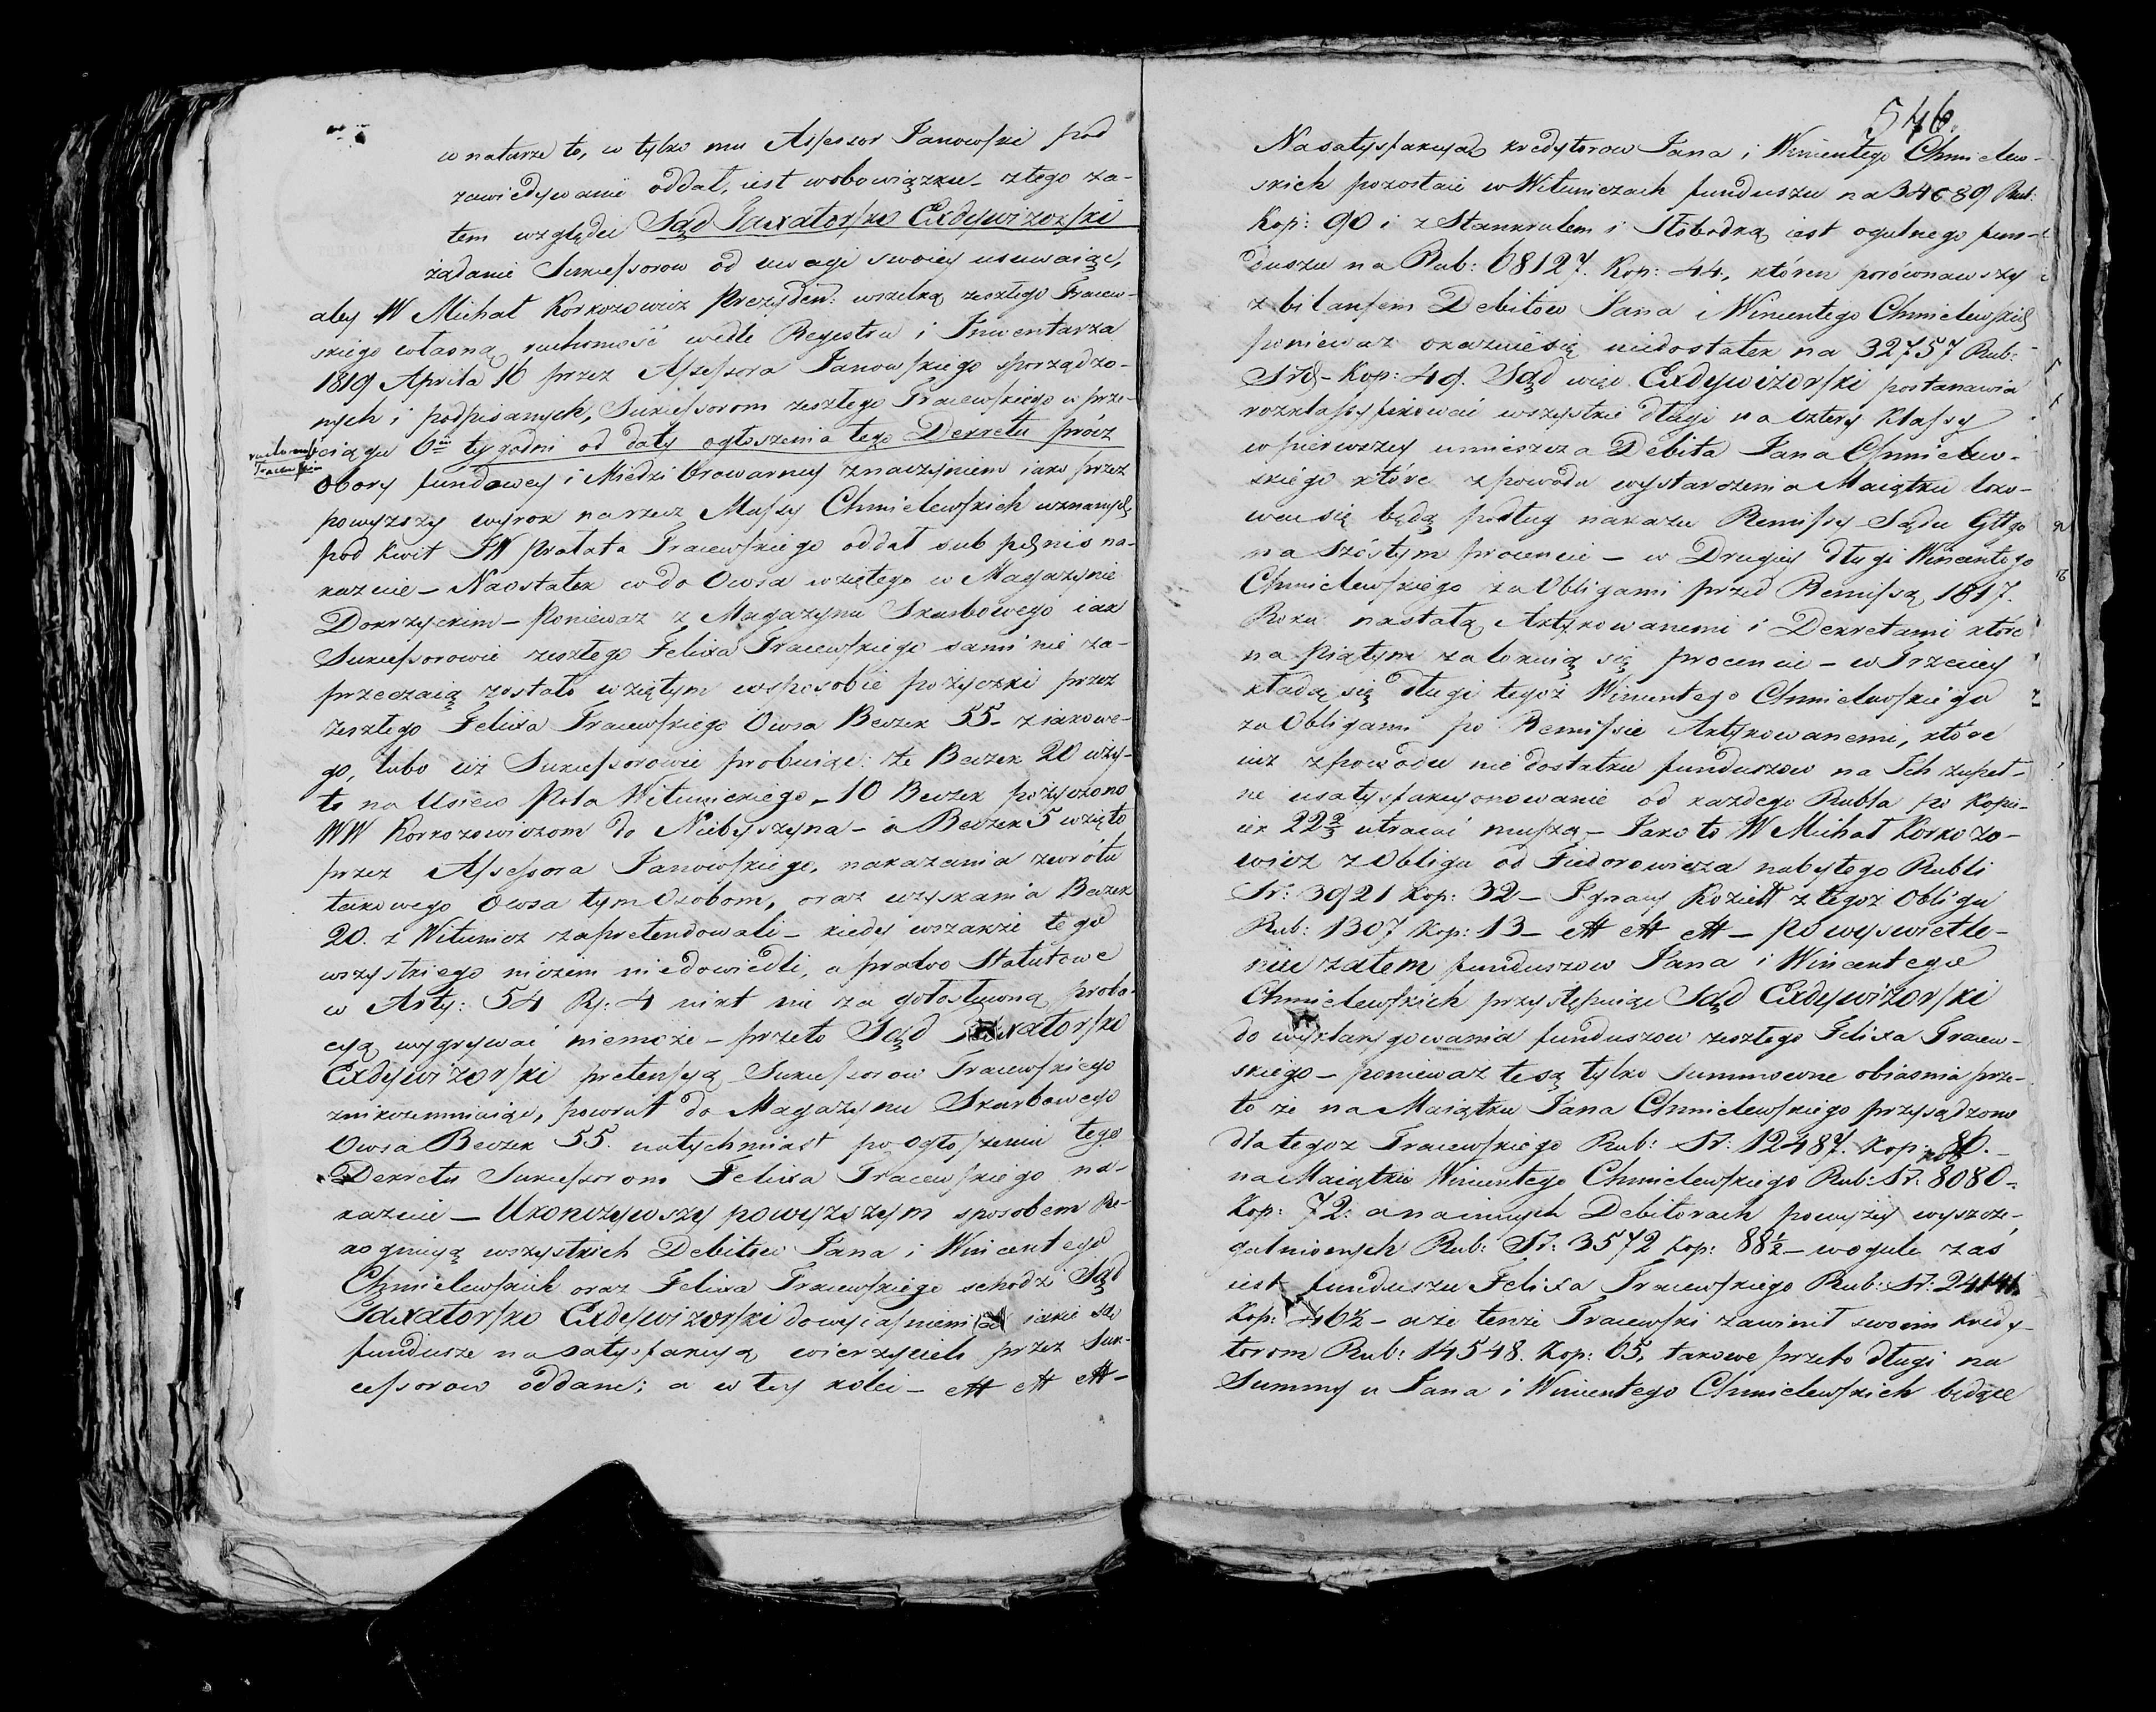 w naturze to, co tylko mu Assessor Janowski pod
zawiedywanie oddał, iest wobowiązku – ztego za-
tem względu Sąd Taxatorsko Exdywizorski
żądanie Sukcessorow od uwagi swoiey usuwaiąc,
aby W Michał Korkozowicz Prezyden: wszelką zeszłego Tracew-
skiego własną ruchomość wedle Regestru i Inwentarza
1819 Aprila 16 przez Assessora Janowskiego sporządzo-
nych i podpisanych, Sukcessorom zeszłego Tracewskiego w prze-
ciągu 6ciu tygodni od daty ogłoszenia tego Dekretu prócz
ruchomość
Tracewskim
Obory fundowey i Miedzi browarney znaczyniem iako przez
powyższy wyrok na rzecz Massy Chmielewskich uznanych
pod kwit JW Prałata Tracewskiego oddał sub pænis na-
kazuie – Naostatek co do Owsa wziętego w Magazynie
Dokrzyckim – Poniewaz z Magazynu Skarbowego iak
Sukcessorowie zeszłego Felixa Tracewskiego sami nie za-
przeczaią zostało wziętym wsposobie pożyczki przez
zeszłego Felixa Tracewskiego Owsa Beczek 55 – z iakowe-
go, lubo iuż Sukcessorowie probuiąc: że Beczek 20 uży-
to na Usiew Pola Witunickiego – 10 Beczek pożyczono
WW Korkozowiczom do Niebyszyna – a Beczek 5 wzięto
przez Assessora Janowskiego, nakazania zwrótu
takowego Owsa tym Osobom, oraz uzyskania Beczek
20. z Witunicz zapretendowali – kiedy wszakże tego
wszystkiego niczem niedowiedli, a prawo Statutowe
w Arty: 54 R: 4 nikt nie za gołosłowną proba-
cyą wygrywać niemoże – przeto Sąd Taxatorsko
Exdywizorski pretensyą Sukcessorow Tracewskiego
znikczemniaiąc, powrót do Magazynu Skarbowego
Owsa Beczek 55. natychmiast po ogłoszeniu tego
Dekretu Sukcessorom Felixa Tracewskiego na-
kazuie – Ukończywszy powyższym sposobem Re-
kognicyą wszystkich Debitow Jana i Wincentego
Chmielewskich oraz Felixa Tracewskiego schodzi Sąd
Taxatorsko Exdywizorski do wyiasnienia iakie są
fundusze na satysfakcyą wierzycieli przez Suk-
cessorow oddane; a w tey kolei –
546.
Na satysfakcyą kredytorow Jana i Wincentego Chmielew-
skich pozostaie w Wituniczach funduszu na 34689 Rub:
Kop: 90 i z Stankrulem i Słobodką iest ogulnego fun-
duszu na Rub: 68127. Kop: 44, któren porównawszy
z bilansem Debitow Jana i Wincentego Chmielewskich
poniewaz okazuie się niedostatek na 32757 Rub:
Srb – Kop: 49. Sąd więc Exdywizorski postanawia
rozklassyfikować wszystkie długi na cztery Klassy
w pierwszey umieszcza Debita Jana Chmielew-
skiego które z powodu wystarczenia Maiątku loko-
wać się będą podług nakazu Remissy Sądu Głłgo
na szóstym procencie – w Drugiey długi Wincentego
Chmielewskiego za Obligami przed Remissą 1817.
Roku nastałą Aktykowanemi i Dekretami które
na piątym zalokuią się procencie – w Trzeciey
kładą się długi tegoż Wincentego Chmielewskiego
za Obligami po Remissie Aktykowanemi, które
iuż z powodu niedostatku funduszow na Ich zupeł-
ne usatysfakcyonowanie od każdego Rubla po kopie-
iek 22 2/3 utracać muszą – Jako to W Michał Korkozo-
wicz z Obligu od Fiedorowicza nabytego Rubli
Sr: 3921 Kop: 32 – Ignacy Koziełł z tegoż Obligu
Rub: 1307 Kop: 13 – Po wyswietle-
niu zatem funduszow Jana i Wincentego
Chmielewskich przystępuiąc Sąd Exdywizorski
do wyklarygowania funduszow zeszłego Felixa Tracew-
skiego – poniewaz te są tylko summowne obiasnia prze-
to że na Maiątku Jana Chmielewskiego przysądzono
dla tegoz Tracewskiego Rub: Sr: 12487. Kop: 86. –
na Maiątku Wincentego Chmielewskiego Rub: Sr: 8080 –
Kop: 72: a na innych Debitorach powyżey wyszcze-
gulnionych Rub: Sr: 3572 Kop: 88 1/2 – wogule zaś
iest funduszu Felixa Tracewskiego Rub: Sr: 24141.
Kop: 46 1/2 – a że tenże Tracewski zawinił swoim kredy-
torom Rub: 14548. Kop: 65, takowe przeto długi na
Summy u Jana i Wincentego Chmielewskich będące